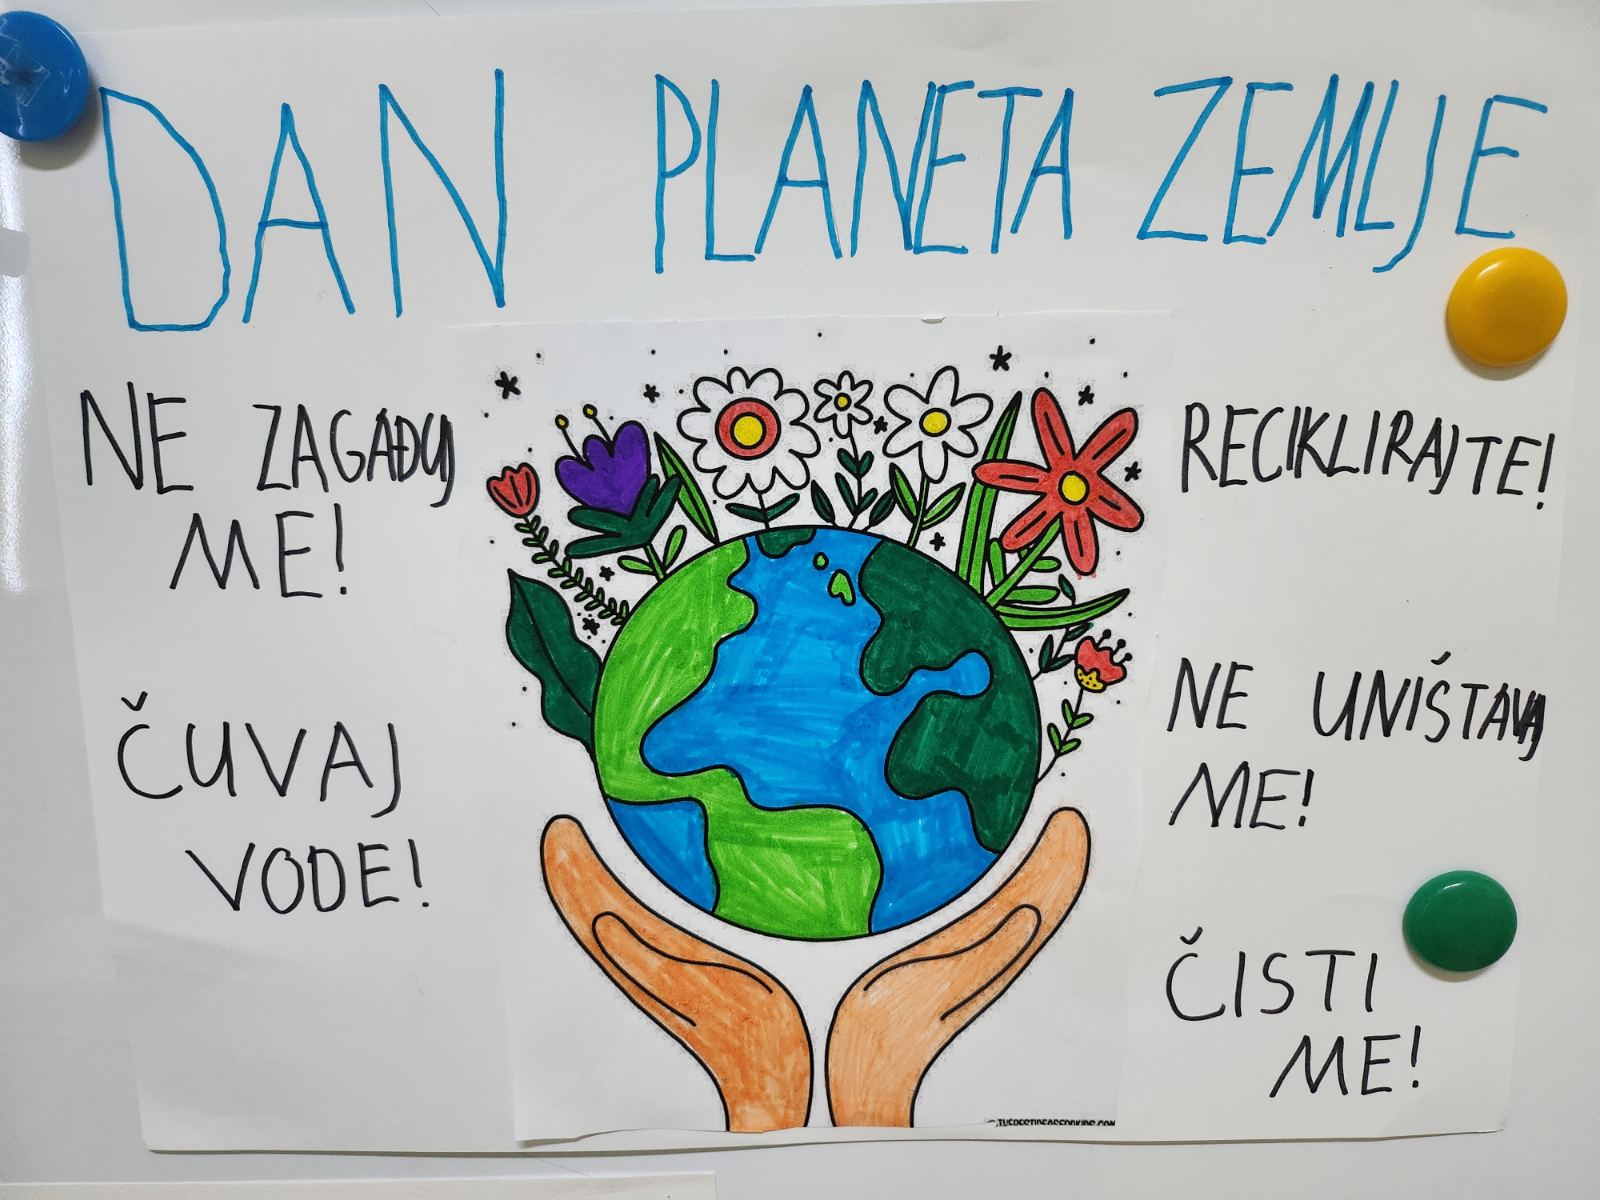 DAN PLANETA ZEMLJE
NE ZAGAĐUJ
ME!
ČUVAJ
VODE!
RECIKLIRAJTE!
NE UNIŠTAVAJ
ME!
ČISTI
ME!
©THEBESTIDEASFORKIDS.COM